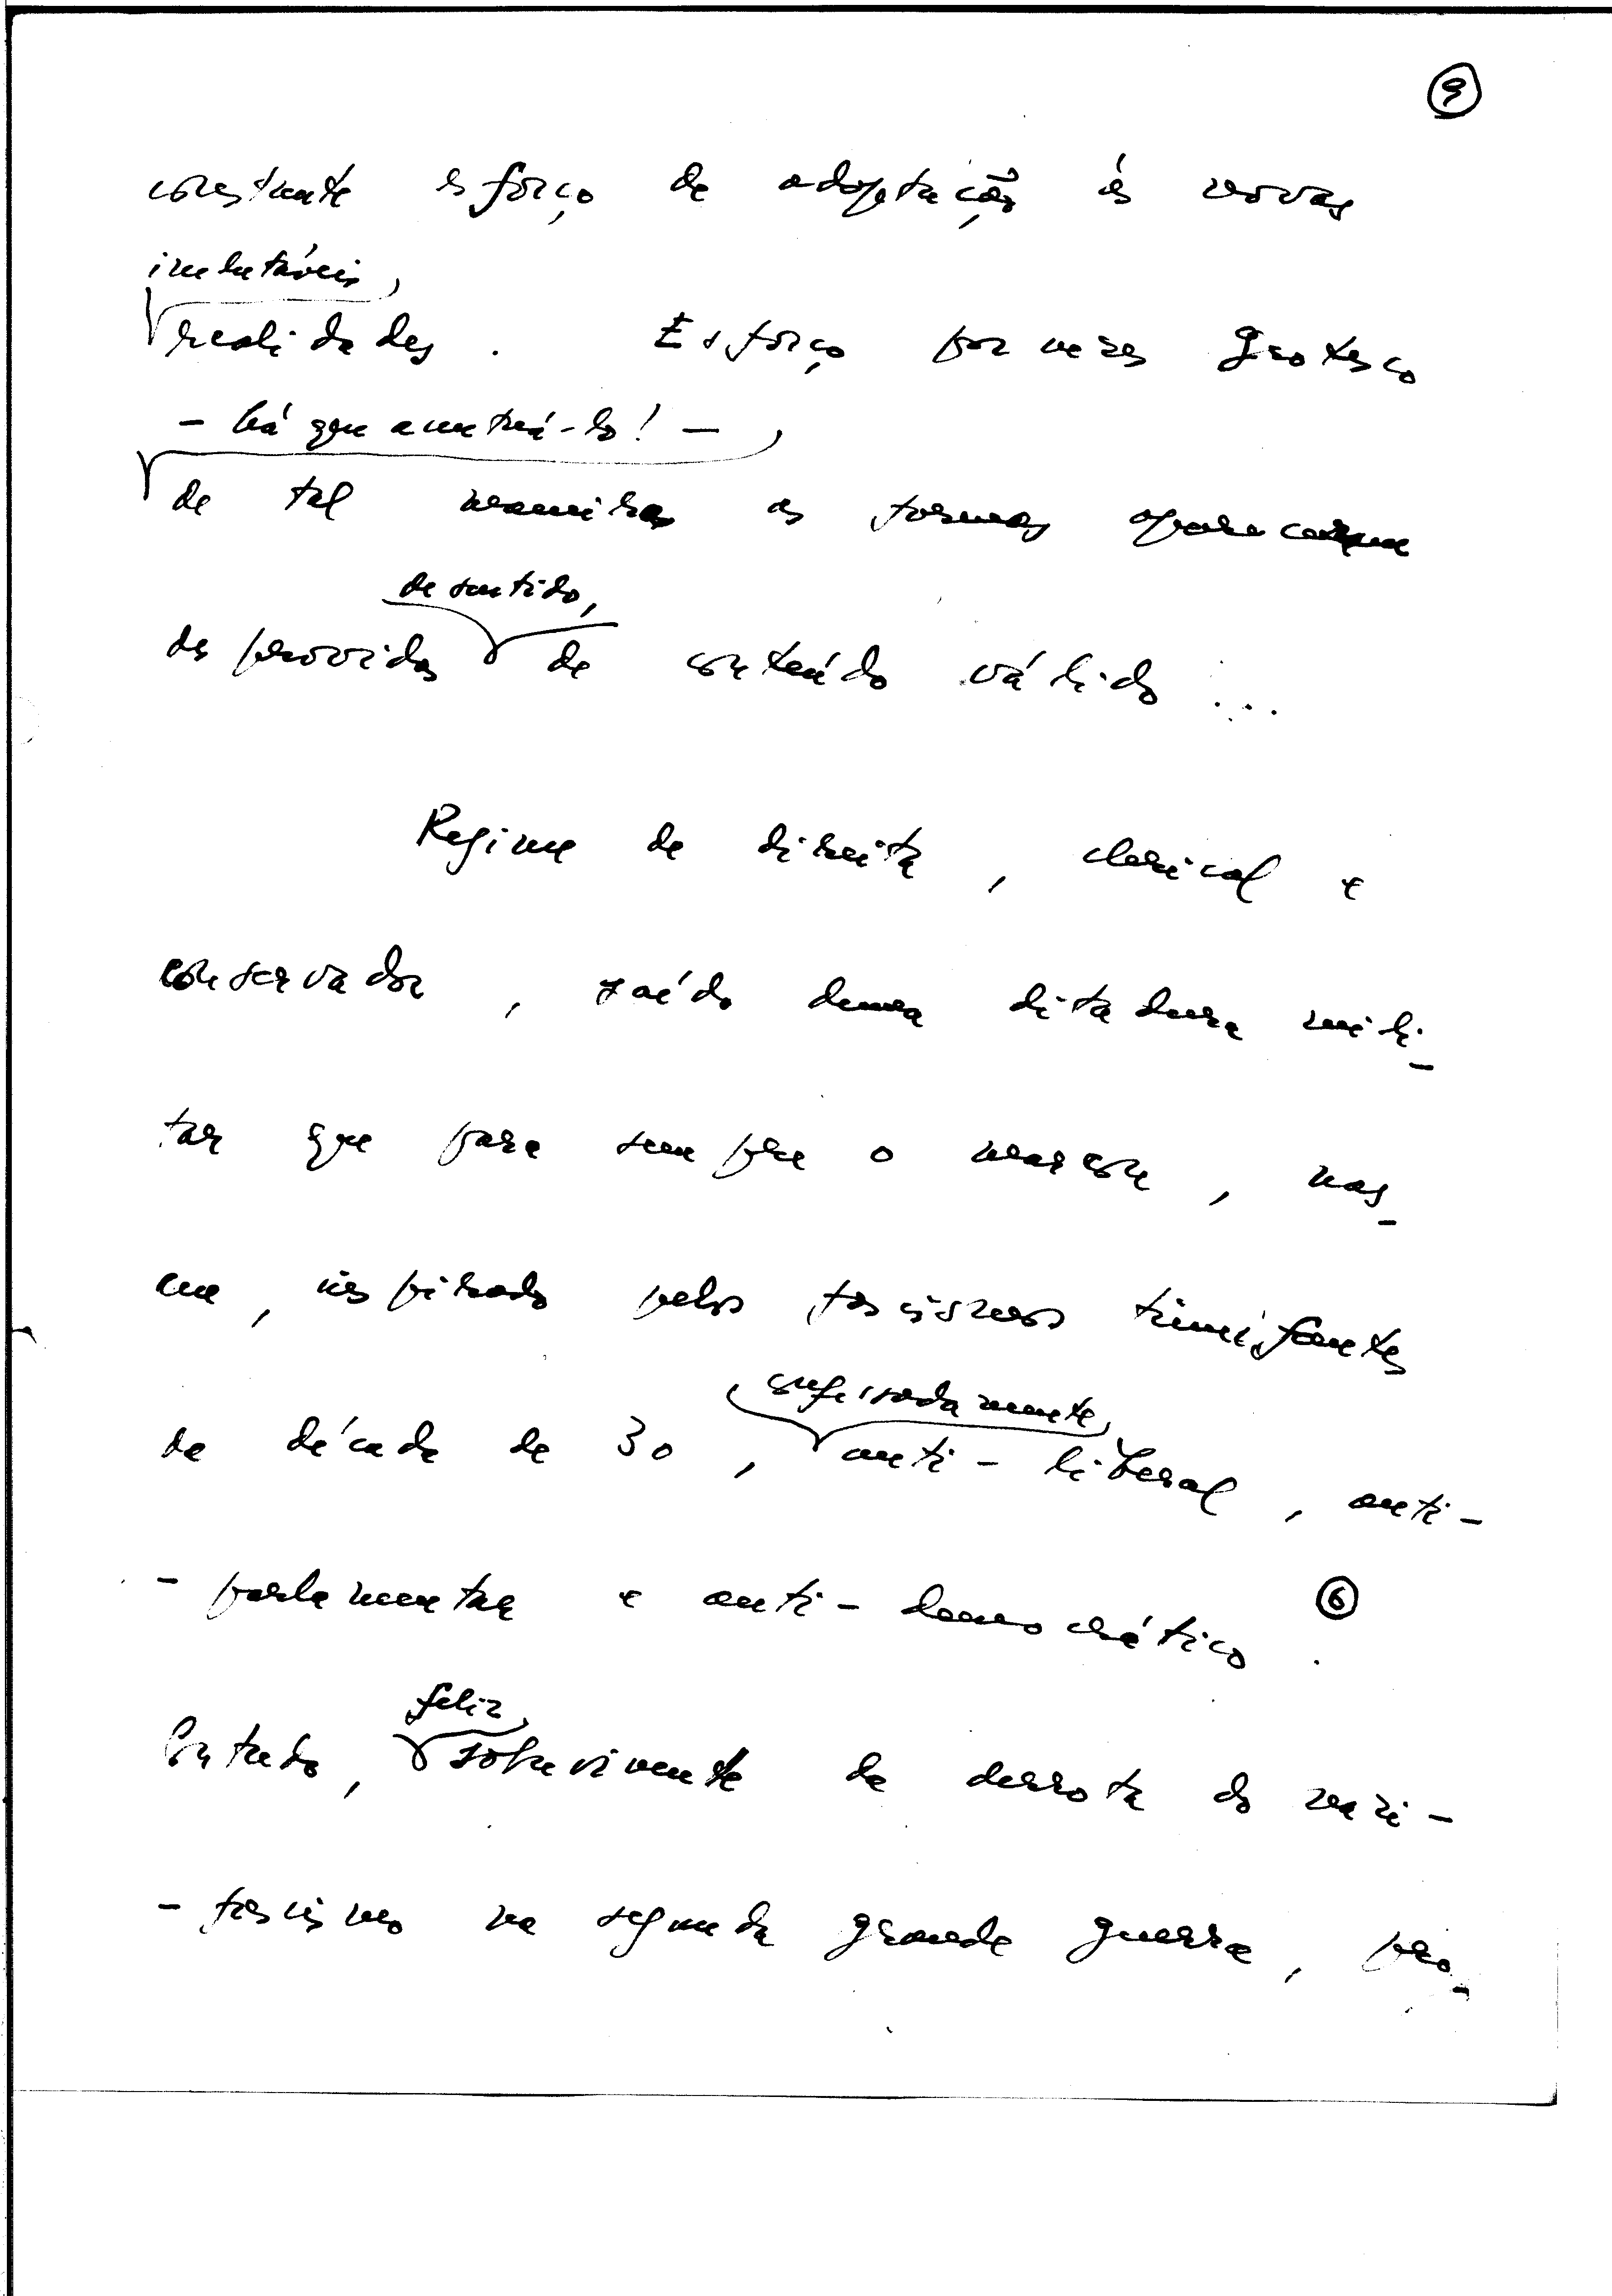 9
constante esforço de adaptação às novas
iniludíveis,
realidades. Esforço por vezes grotesco
- há que acentuá-lo! -,
de tal maneira as formas aparecem
desprovidas de conteúdo válido ...
de sentido,
Regime de direita, clerical e
conservador, saído duma ditadura mili-
tar que para sempre o marcou, nas-
ceu, inspirado pelos fascismos triunfantes
confessadamente
da década de 30, anti-liberal, anti-
-parlamentar e anti-democrático 6.
feliz
Contudo, sobrevivente da derrota do nazi-
-fascismo na segunda grande guerra, pro-